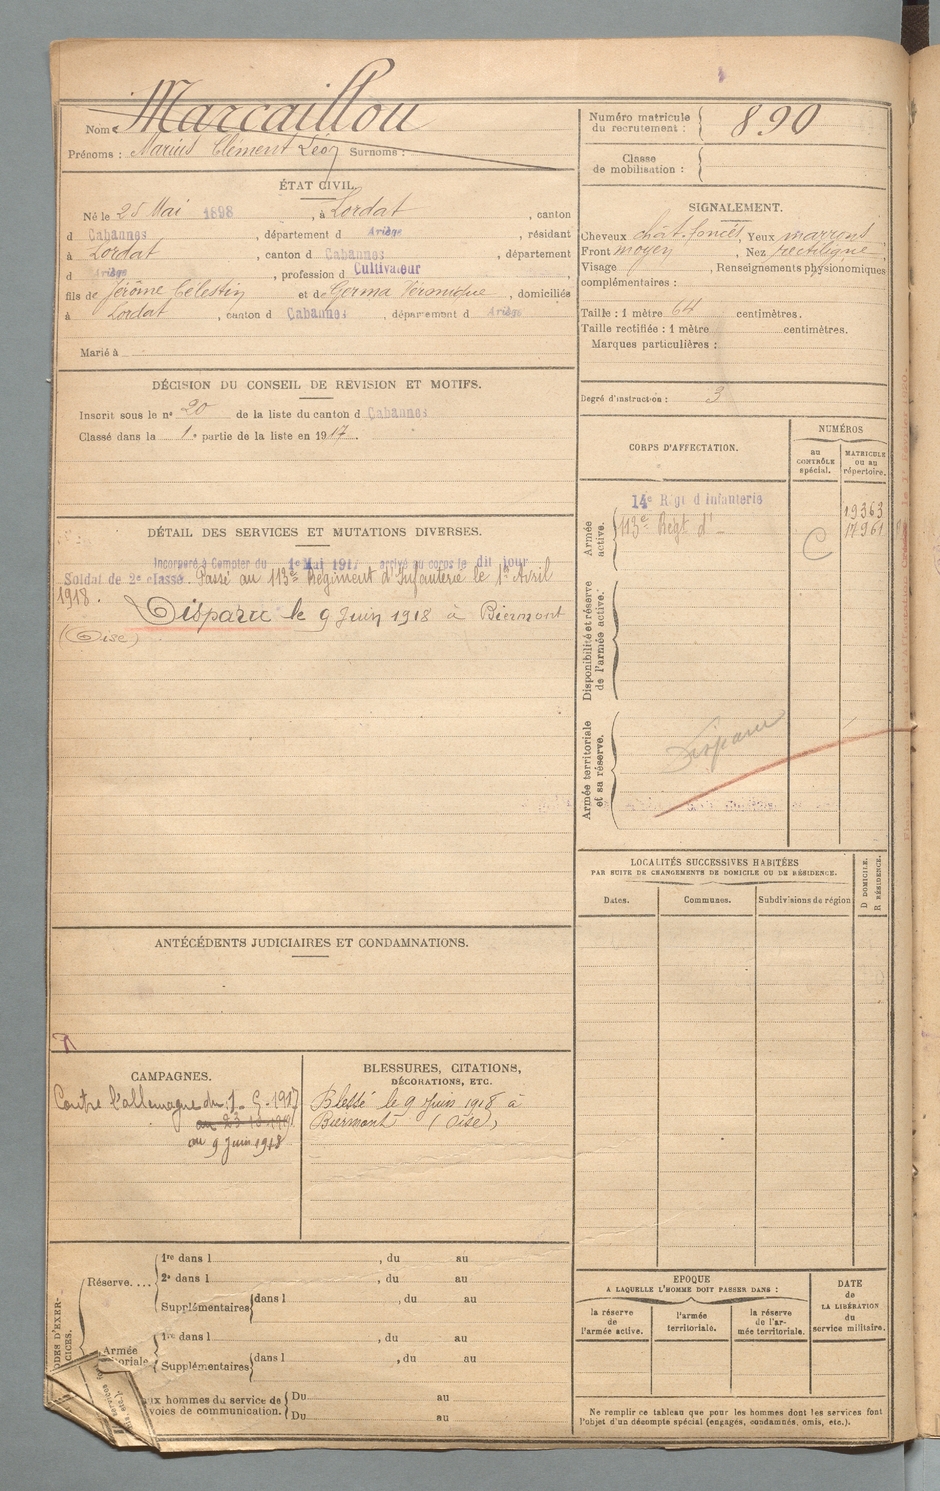 Nom : Marcaillou
Prénoms : Marius Clément Léon Surnoms :
Numéro matricule du recrutement : 890
Classe de mobilisation :
ÉTAT CIVIL.
Né le 25 Mai 1898, à Lordat, canton
d Cabannes, département d Ariège, résidant
à Lordat, canton d Cabannes, département
d Ariège, profession d Cultivateur
fils de Jérôme Célestin et de Germa Véronique, domiciliés
à Lordat, canton d Cabannes, département d Ariège
Marié à
SIGNALEMENT.
Cheveux chât. foncés, Yeux marrons
Front moyen, Nez rectiligne
Visage , Renseignements physionomiques
complémentaires :
Taille : 1 mètre 64 centimètres.
Taille rectifiée : 1 mètre centimètres.
Marques particulières :
Degré d'instruction : 3
DÉCISION DU CONSEIL DE RÉVISION ET MOTIFS.
Inscrit sous le nº 20 de la liste du canton d Cabannes
Classé dans la 1e partie de la liste en 1917.
DÉTAIL DES SERVICES ET MUTATIONS DIVERSES.
Incorporé à Compter du 1e Mai 1917 arrivé au corps le dit jour
Soldat de 2e classe. Passé au 113e Régiment d'Infanterie le 1er Avril
1918.
Disparu le 9 Juin 1918 à Biermont
(Oise)
CORPS D'AFFECTATION.
NUMÉROS
au CONTRÔLE spécial.
MATRICULE ou au répertoire.
Armée active.
14e Régt d'Infanterie 19363
113e Régt d' - C 17961
Disponibilité et réserve de l'armée active.
Armée territoriale et sa réserve.
Disparu
ANTÉCÉDENTS JUDICIAIRES ET CONDAMNATIONS.
LOCALITÉS SUCCESSIVES HABITÉES
PAR SUITE DE CHANGEMENTS DE DOMICILE OU DE RÉSIDENCE.
Dates.
Communes.
Subdivisions de région
D DOMICILE.
R RÉSIDENCE.
CAMPAGNES.
Contre l'allemagne du 1-5-1917
au 9 Juin 1918
BLESSURES, CITATIONS,
DÉCORATIONS, ETC.
Blessé le 9 Juin 1918 à
Biermont (Oise)
Réserve.... 1re dans l , du au
2e dans l , du au
Supplémentaires dans l , du au
Armée
1re dans l , du au
Supplémentaires dans l , du au
ux hommes du service de
voies de communication. Du au
Du au
EPOQUE
A LAQUELLE L'HOMME DOIT PASSER DANS :
la réserve de l'armée active.
l'armée territoriale.
la réserve de l'armée territoriale.
DATE de LA LIBÉRATION du service militaire.
Ne remplir ce tableau que pour les hommes dont les services font
l'objet d'un décompte spécial (engagés, condamnés, omis, etc.).